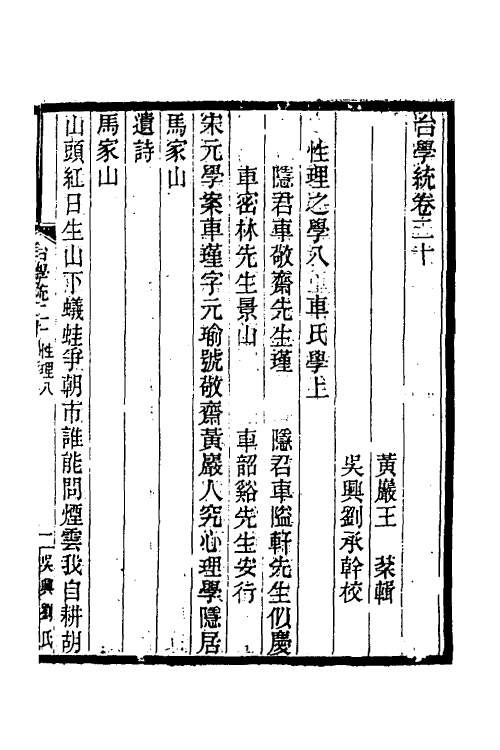 台學統卷二十
黃巖王　棻輯
吳興劉承幹校
性理之學八　車氏學上
隱君車敬齋先生瑾　隱君車隘軒先生似慶
車密林先生景山　車韶谿先生安行
宋元學案車瑾字元瑜號敬齋黃巖人究心理學隱居
馬家山
遺詩
馬家山
山頭紅日生山下蟻蛙爭朝市誰能問煙雲我自耕胡
台學統二十　性理八　一　吳興劉氏